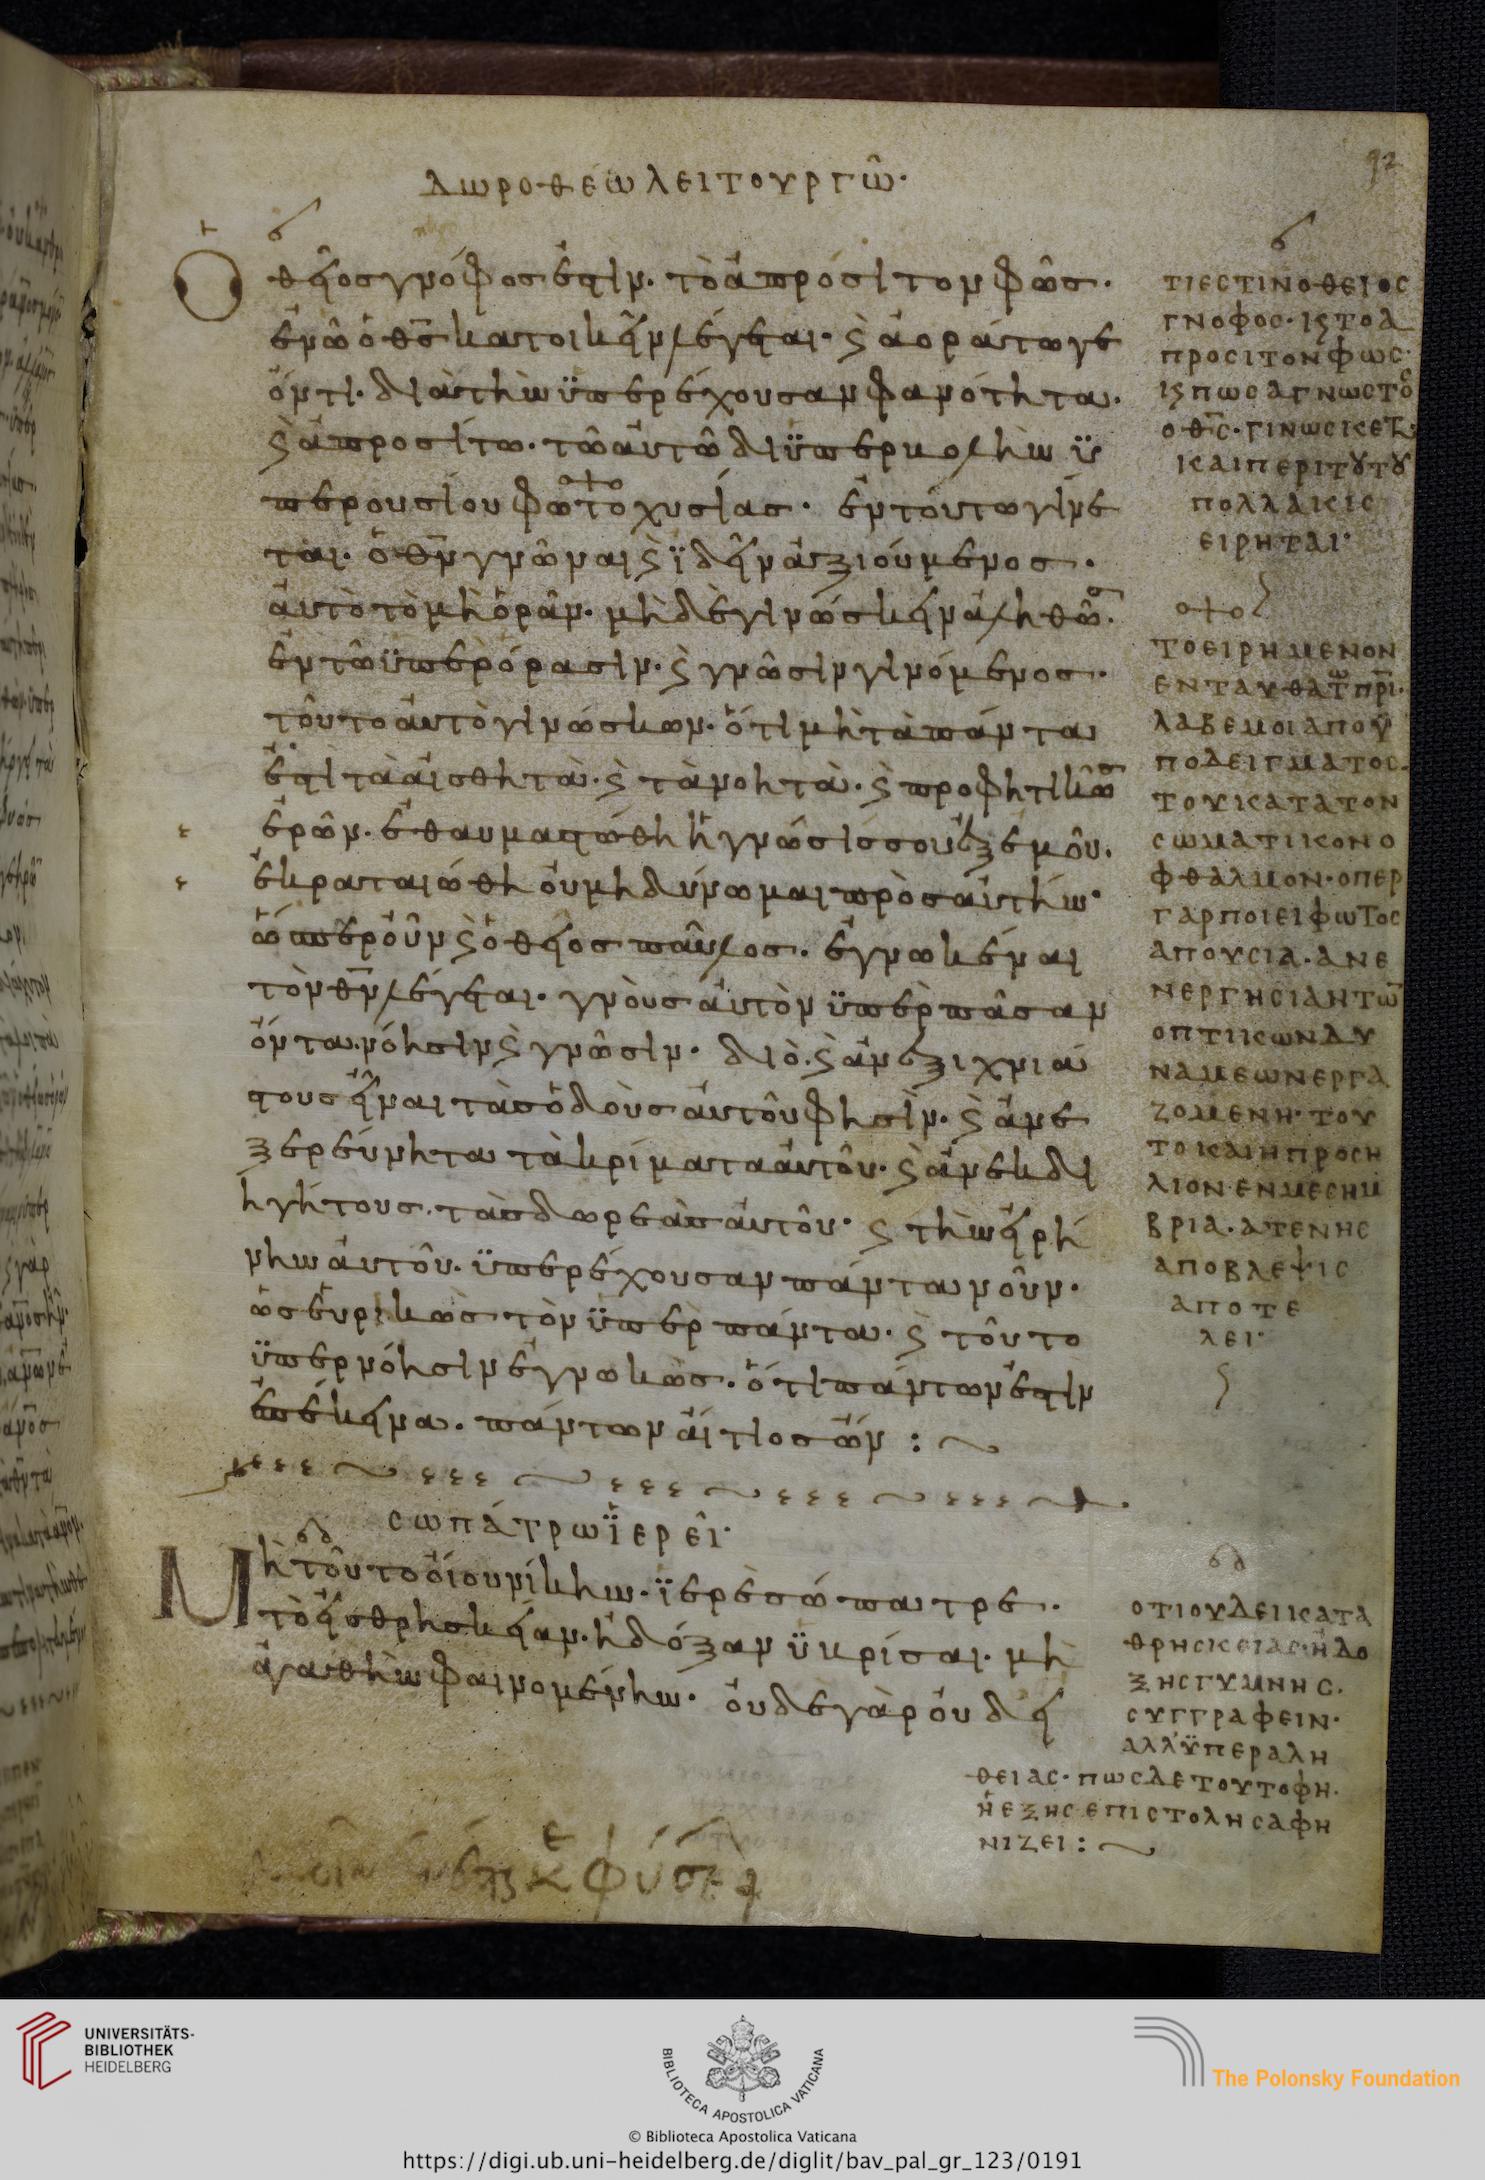 92
Δωροθέω λειτουργῶ·
Ὁ θεῖος γνόφος ἐστὶν· τὸ ἀπρόσιτον φῶς·
ἐν ὧ ὁ θ̅ς̅ κατοικεῖν λέγεται· ϗ ἀοράτω γε
ὄντι· διὰ τὴν ὑπερέχουσαν φανότητα·
ϗ ἀπροσίτω· τῶ αὐτῶ δι ὑπερβολὴν ὑ
περουσίου φωτοχυσίας· ἐν τούτω γίνε
ται· ὁ θ̅ν̅ γνῶναι ϗ ἰδεῖν ἀξιούμενος·
αὐτὸ τὸ μὴ ὁρᾶν· μὴ δὲ γινώσκειν ἀληθῶς·
ἐν τῶ ὑπὲρ ὅρασιν· ϗ γνῶσιν γινόμενος·
τοῦτο αὐτὸ γινώσκων· ὅτι μὴ τὰ πάντα
ἐστὶ τὰ αἰσθητὰ· ϗ τὰ νοητὰ· ϗ προφητικῶς
ἐρῶν· ἐθαυμαστώθη ἡ γνῶσίς σου ἐξ ἐμοῦ·
ἐκραταιώθη οὐ μὴ δύνωμαι πρὸς αὐτήν·
ὥσπερ οὖν ϗ ὁ θεῖος παῦλος· ἐγνωκέναι
τὸν θ̅ν̅ λέγεται· γνοὺς αὐτὸν ὑπὲρ πᾶσαν
ὄντα νόησιν ϗ γνῶσιν· διὸ ϗ ἀνεξιχνιά
στους εἶναι τὰς ὁδοὺς αὐτοῦ φησὶν· ϗ ἀνε
ξερεύνητα τὰ κρίματα αὐτοῦ· ϗ ἀνεκδι
ηγήτους τὰς δωρεὰς αὐτοῦ· ϗ τὴν εἰρή
νην αὐτοῦ· ὑπερέχουσαν πάντα νοῦν·
ὡς εὑρηκὼς τὸν ὑπὲρ πάντα· ϗ τοῦτο
ὑπὲρ νόησιν ἐγνωκὼς· ὅτι πάντων ἐστὶν
ἐπέκεινα· πάντων αἴτιος ὤν :
σωπάτρω ϊερεῖ·
Μὴ τοῦτο οἴου νίκην· ϊερὲ σώπατρε·
τὸ εἰς θρησκείαν· ἢ δόξαν ὑβρίσαι· μὴ
ἀγαθὴν φαινομένην· οὐδε γὰρ οὐδ εἰ
τι εστιν ο θειος
γνοφος· ϗ το α
προσιτον φως·
ϗ πως αγνωστος
ο θ̅ς̅· γινωσκετ
και περι τουτου
πολλακις
ειρηται·
το ειρημενον
ενταυθα τω π̅ρ̅ι̅·
λαβε μοι απο ϋ
ποδειγματος
του κατα τον
σωματικον ο
φθαλμον· οπερ
γαρ ποιει φωτος
απουσια· ανε
νεργησια η των
οπτικων δυ
ναμεων εργα
ζομενη· του
το και η προς η
λιον εν μεσημ
βρια· ατενης
αποβλεψις
αποτε
λει·
οτι ου δει κατα
θρησκειας· ἢ δο
ξης γυμνης·
συγγραφειν·
αλλ ὑπερ αλη
θειας· πως δε τουτο φη·
ἡ εξης επιστολη σαφη
νιζει :
UNIVERSITÄTS-
BIBLIOTHEK
HEIDELBERG
BIBLIOTECA APOSTOLICA VATICANA
The Polonsky Foundation
© Biblioteca Apostolica Vaticana
https://digi.ub.uni-heidelberg.de/diglit/bav_pal_gr_123/0191